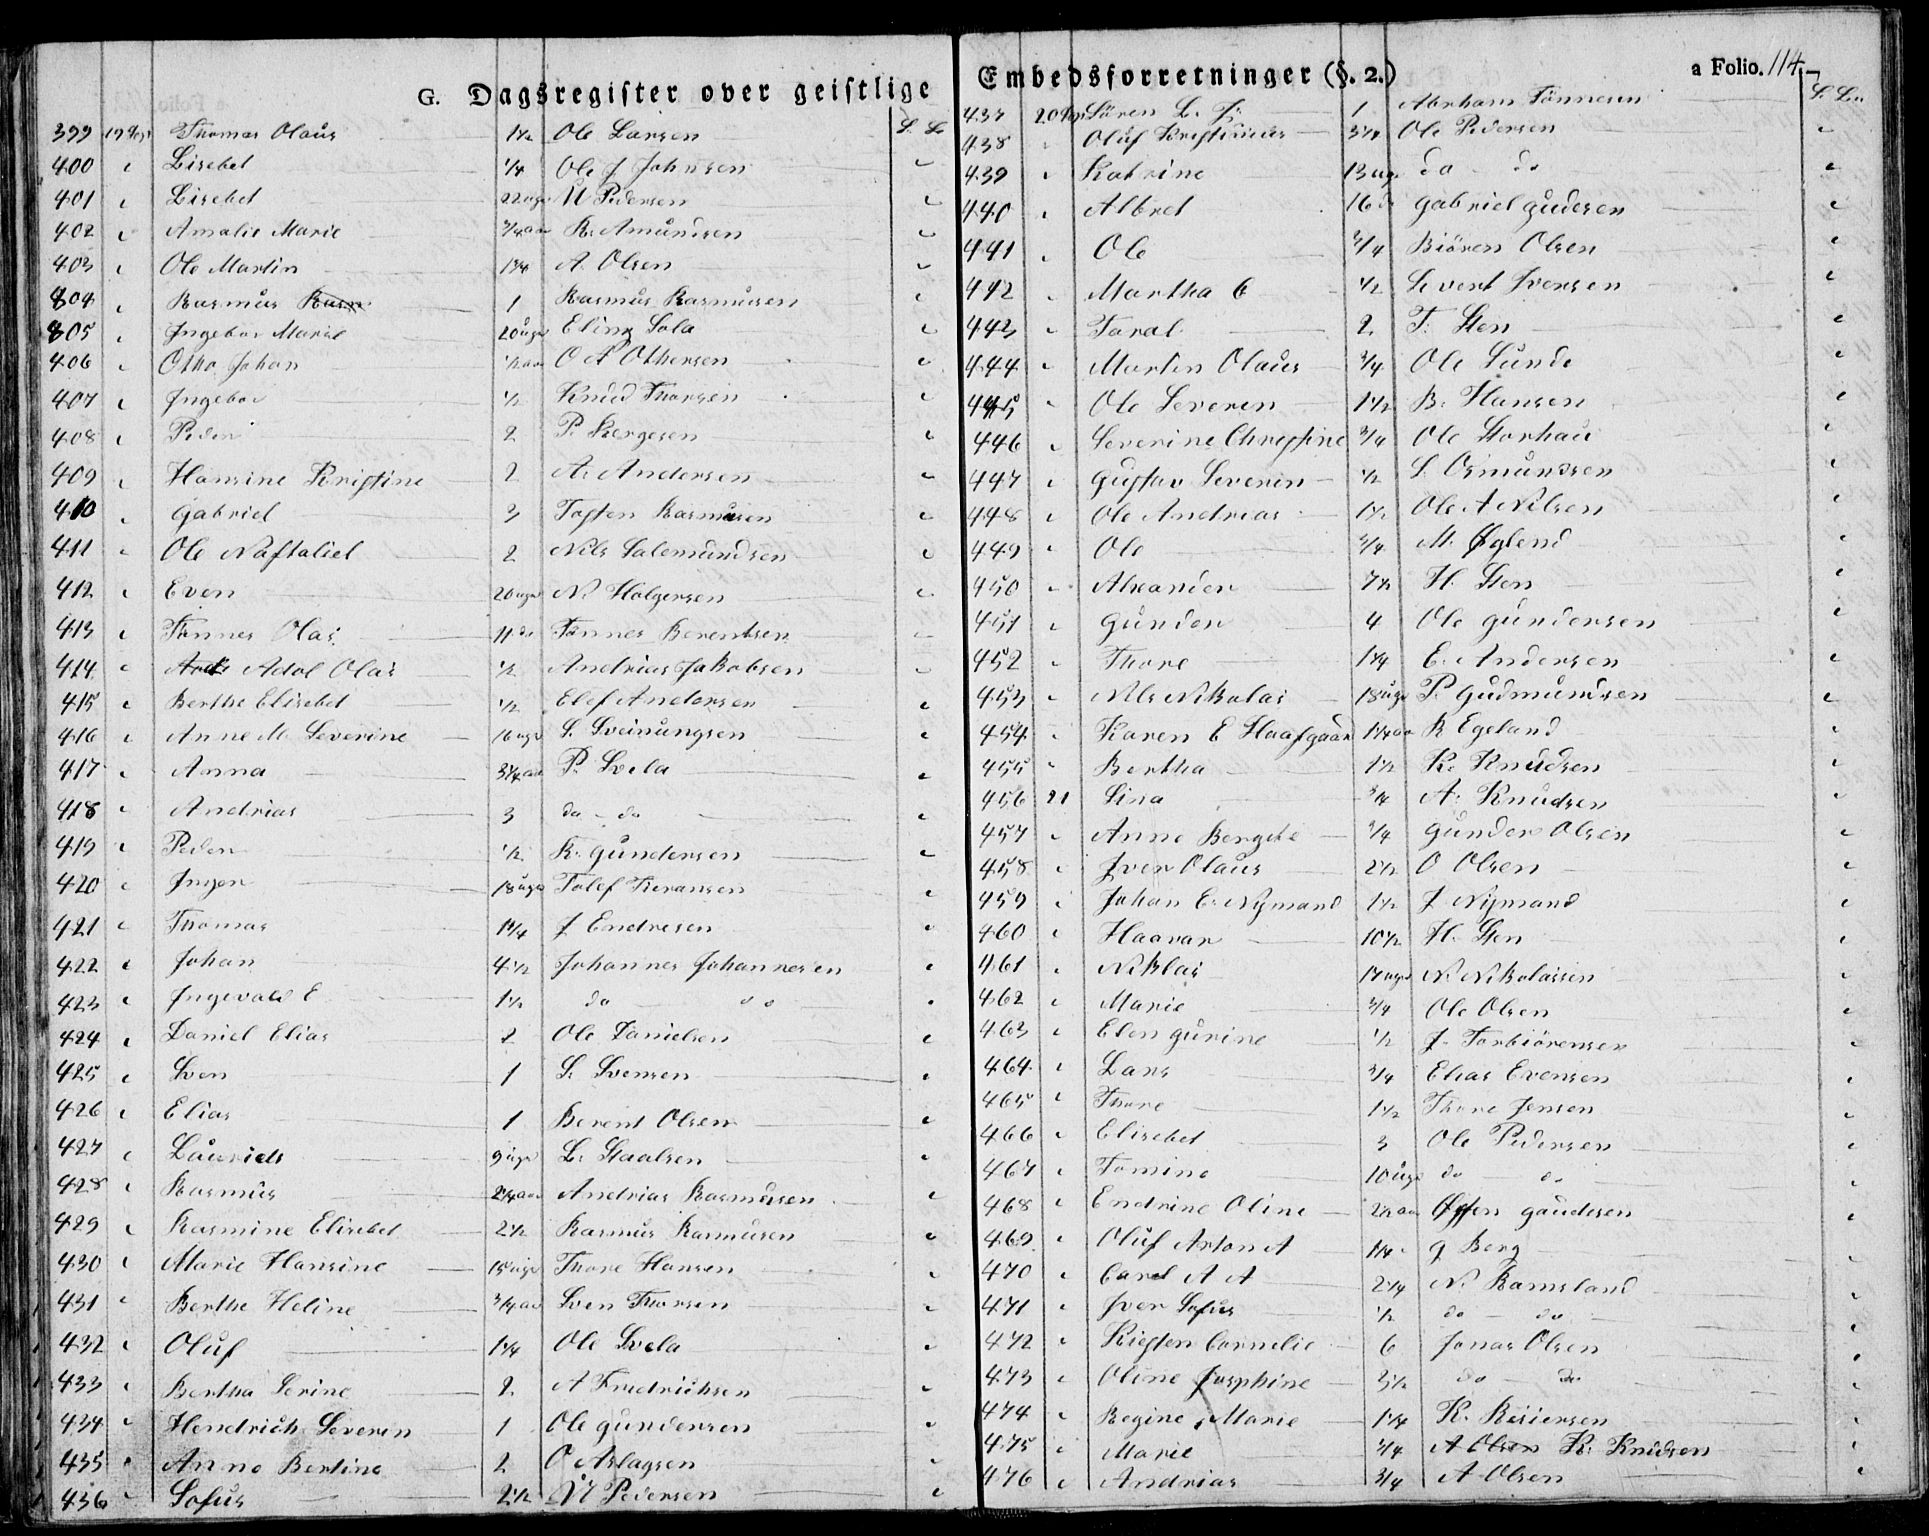 G. Dagsregister over geistlige
399 19 Thomas Olaus 1½ Ole Larsen S. L.
400 Lisebet ¼ Ole J Johnsen
401 Lisebet 22 uger N Pedersen
402 Amalie Marie ¾ aar R. Amundsen
403 Ole Martin 1¾ A. Olsen
804 Rasmus 1 Rasmus Rasmusen
805 Ingebor Marie 20 uger Eling Sola
406 Otho Johan ½ aar O A Othersen
407 Ingebor ½ Knud Thorsen
408 Peder 2 P. Børgesen
409 Hansine Kristine 2 A. Andersen
410 Gabriel 3 Tosten Rasmusen
411 Ole Naftaliel 2 Nils Salemundsen
412 Even 20 uger N. Holgersen
413 Tønnes Olai 11 do Tønnes Berentsen
414 Adol Olai ½ Andrias Jakobsen
415 Berthe Elisebet ½ Elef Andersen
416 Anne M. Severine 16 uger S. Sveinungsen
417 Anna 3¼ aar P. Svela
418 Andrias 3 do - do
419 Peder ½ K. Gundersen
420 Inger 18 uger Tolef
421 Thomas 1¼ J Endresen
422 Johan 4½ Johannes Johannesen
423 Ingevald E 1½ do do
424 Daniel Elias 2 Ole Danielsen
425 Sven 1 S. Svensen
426 Elias 1 Berent Olsen
427 Lauriels 9 uger L. Staalsen
428 Rasmus 2¼ aar Andrias Rasmusen
429 Rasmine Elisebet 2½ Rasmus Rasmusen
430 Marie Hansine 15 uger Thore Hansen
431 Berthe Heline ¾ aar Sven Thorsen
432 Oluf 1¼ Ole Svela
433 Bertha Serine 2 A Fredrichsen
434 Hendrich Severin 1 Ole Gundersen
435 Anne Bertine 2 O Aslagsen
436 Sofus 2½ N Pedersen
Embedsforretninger (§. 2.) a Folio. 114
437 20 Søren L. 1 Abraham Tønnesen S. L.
438 Oluf Kristinius 3½ Ole Pedersen
439 Katrine 13 uger do do
440 Albret 16 do Gabriel Gudesen
441 Ole ¾ Biøren Olsen
442 Martha C ½ Sivert Iversen
443 Taral 2 T. Sten
444 Martin Olaus ¾ Ole Lunde
445 Ole Severin 1½ B. Hansen
446 Severine Christine ¾ Ole Storhau
447 Gustav Severin ½ S. Osmundsen
448 Ole Andreas 1½ Ole A Nilsen
449 Ole ¾ M. Øglend
450 Alexander 7½ H. Sten
451 Gunder 4 Ole Gundersen
452 Thore 1¼ E. Andersen
453 Nils Nikolai 18 uger P. Gudmundsen
454 Karen E Haafgaar 1¼ aar R Egeland
455 Bertha 1½ K. Knudsen
456 21 Sina ¾ A. Knudsen
457 Anne Bergite ¾ Gunder Olsen
458 Iver Olaus 2½ O Olsen
459 Johan E. Nymand 1½ J Nymand
460 Haavar 10½ H. Sten
461 Niklai 17 uger N. Nikolaisen
462 Marie ¾ Ole Olsen
463 Elen Gurine ½ J. Torbiørensen
464 Lars ¾ Elias Evensen
465 Thore 1½ Thore Jensen
466 Elisebet 3 Ole Pedersen
467 Tomine 10 uger do do
468 Endrine Oline 2½ aar Østen Gaudesen
469 Oluf Anton A 1¼ G Berg
470 Carel A A 2¼ N. Ramsland
471 Iver Sofus ½ do - do
472 Kiesten Cornelie 6 Jonas Olsen
473 Oline Josphine 3½ do - do
474 Regine Marie 1¼ K. Reiersen
475 Marie ¾ A Olsen K. Knudsen
476 Andrias ¾ A Olsen